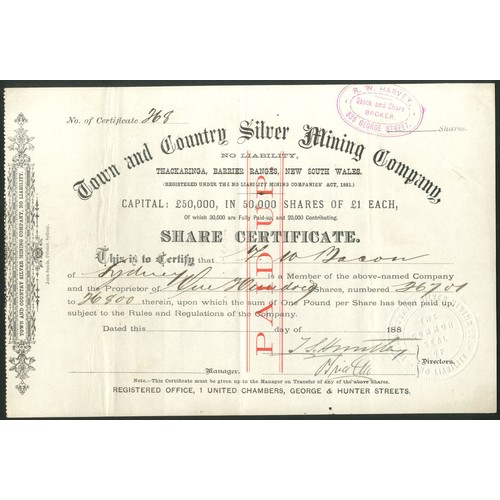 R. W. HARVEY,
Stock and Share
BROKER.
GEORGE STREET.
No. of Certificate 268
Shares.
Town and Country Silver Mining Company,
NO LIABILITY,
THACKARINGA, BARRIER RANGES, NEW SOUTH WALES.
(REGISTERED UNDER THE NO LIABILITY MINING COMPANIES' ACT, 1881.)
CAPITAL: £50,000, IN 50,000 SHARES OF £1 EACH,
Of which 30,000 are Fully Paid-up and 20,000 Contributing.
SHARE CERTIFICATE.
This is to Certify that W Bacon
of Sydney is a Member of the above-named Company
and the Proprietor of One Hundred Shares, numbered 36701
to 36800 therein, upon which the sum of One Pound per Share has been paid up,
subject to the Rules and Regulations of the Company.
Dated this day of 188
PAID UP
Directors.
Manager.
Note.—This Certificate must be given up to the Manager on Transfer of any of the above Shares.
REGISTERED OFFICE, 1 UNITED CHAMBERS, GEORGE & HUNTER STREETS.
TOWN AND COUNTRY SILVER MINING COMPANY, NO LIABILITY.
John Sands, Printer, Sydney.
THE
COMMON
SEAL
OF
NO LIABILITY